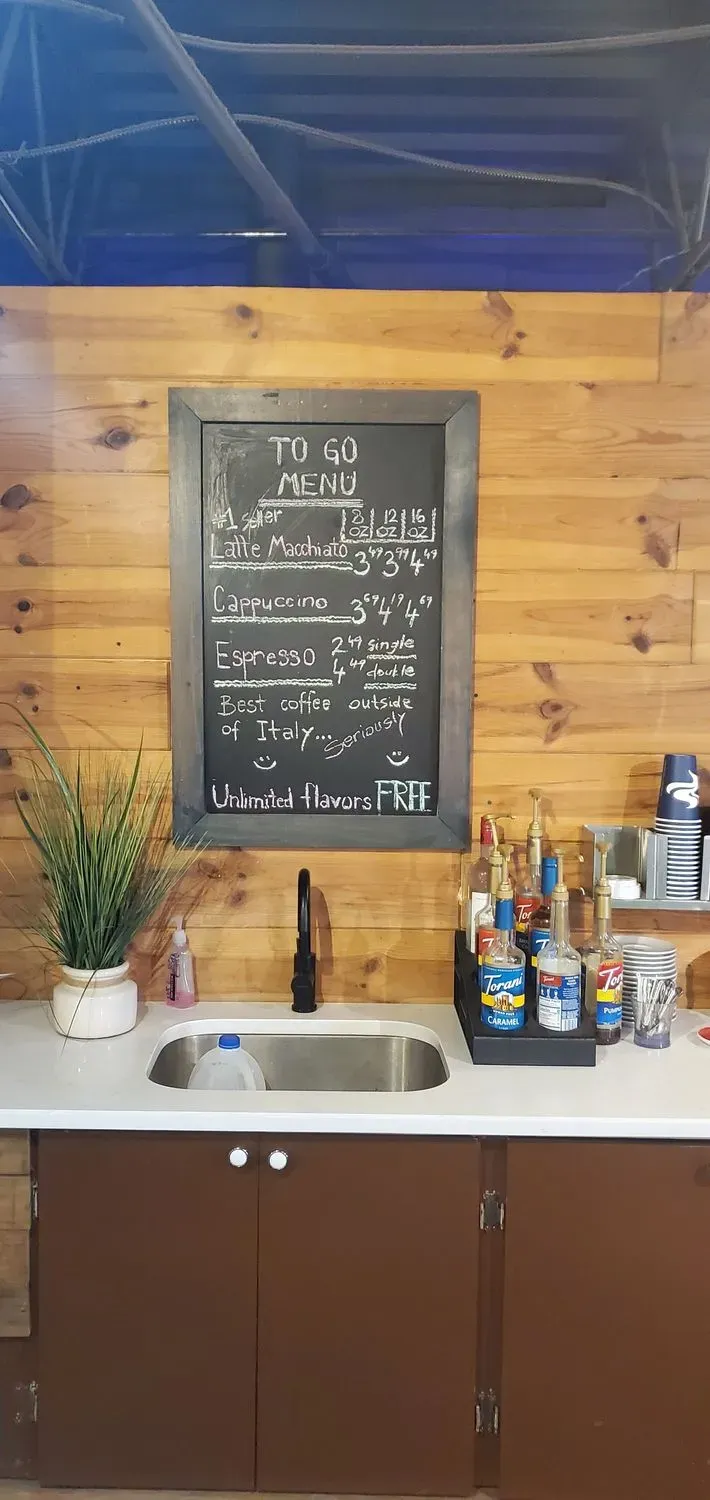 TO GO
MENU
#1 seller
8 OZ 12 OZ 16 OZ
Latte Macchiato 3.49 3.99 4.49
Cappuccino 3.69 4.19 4.69
Espresso 2.49 single
4.49 double
Best coffee outside
of Italy... Seriously
Unlimited flavors FREE
Torani
CARAMEL